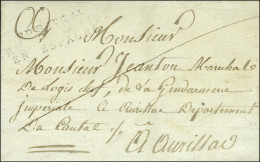 Monsieur
Monsieur Jeanton Marechal
De Logis chef, de la Gendarmerie
imperiale a Aurillac Departement
Du Cantal
A Aurillac